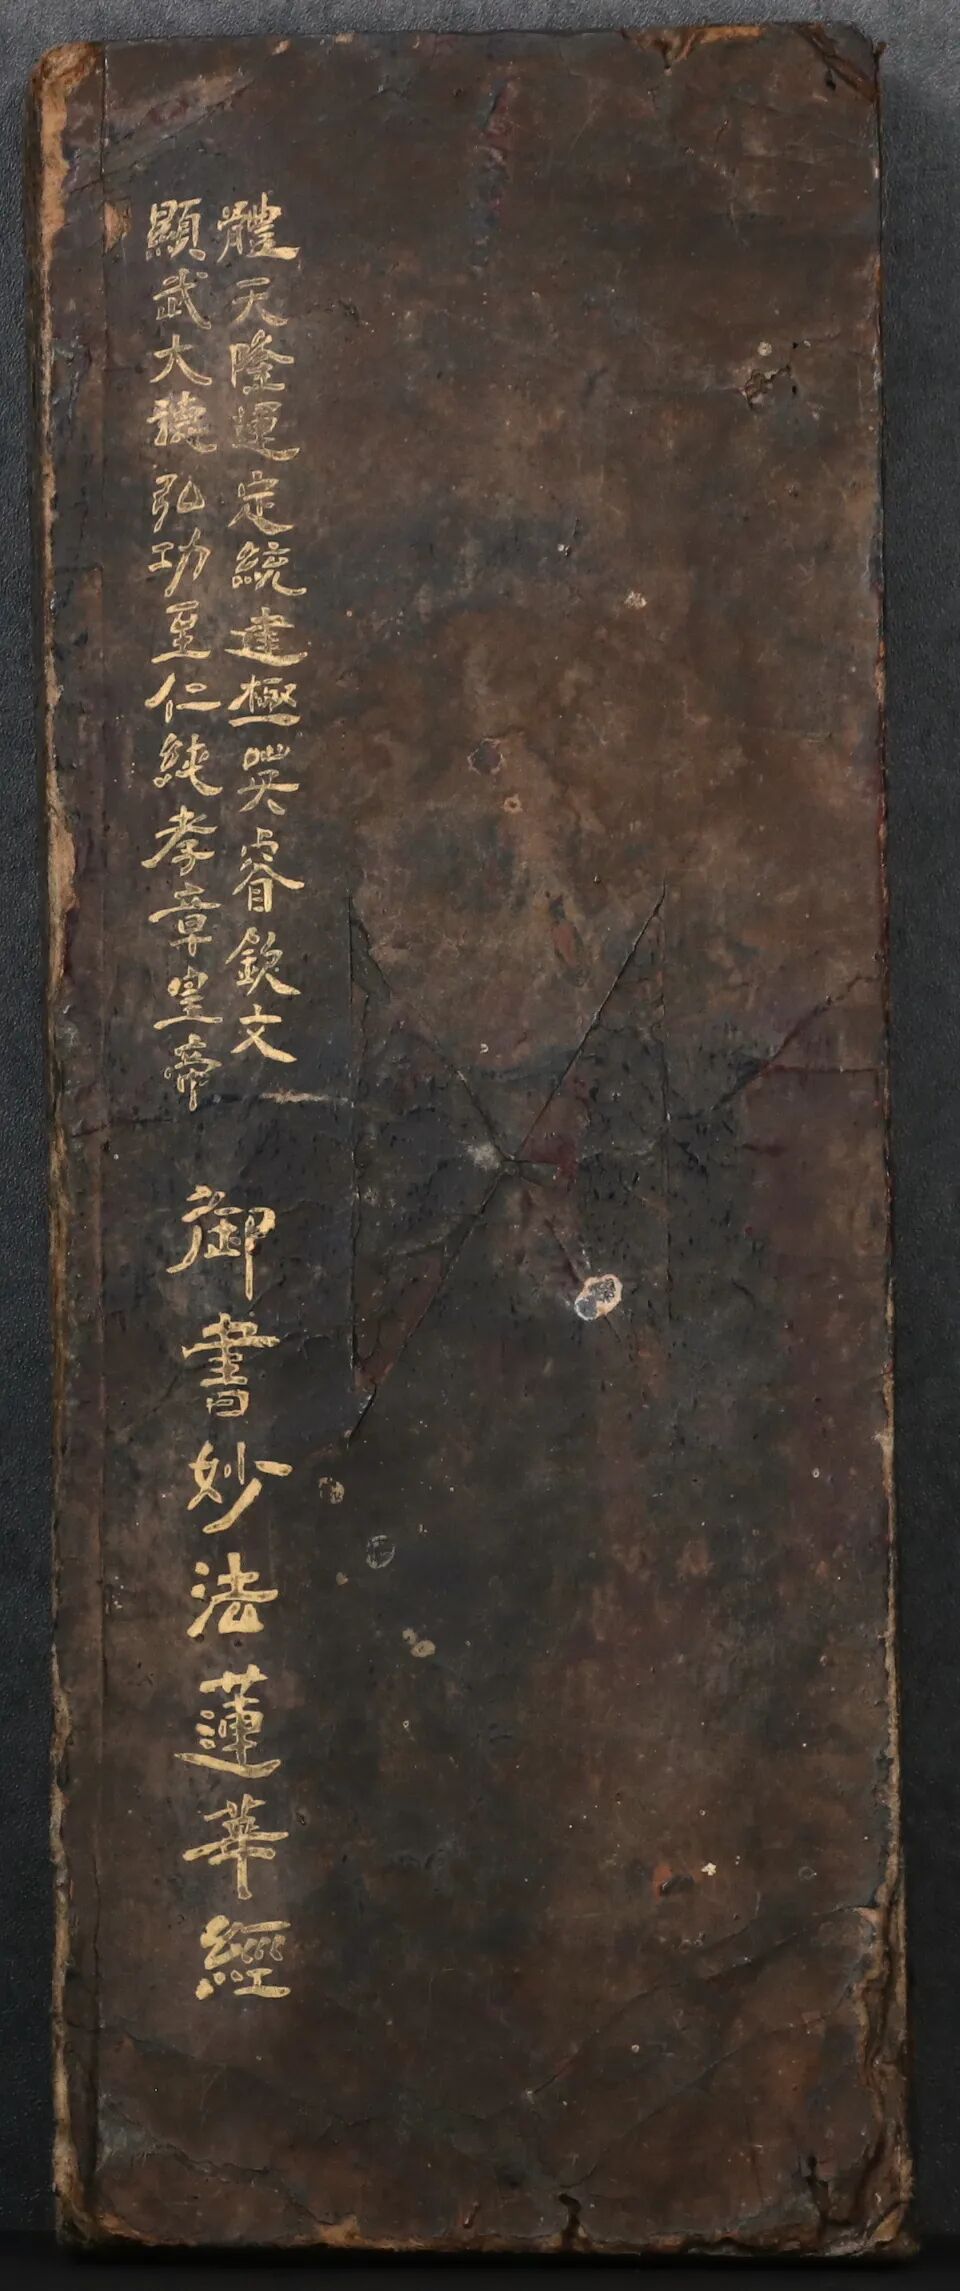 體天隆運定統建極英睿欽文
顯武大德弘功至仁純孝章皇帝
御書妙法蓮華經